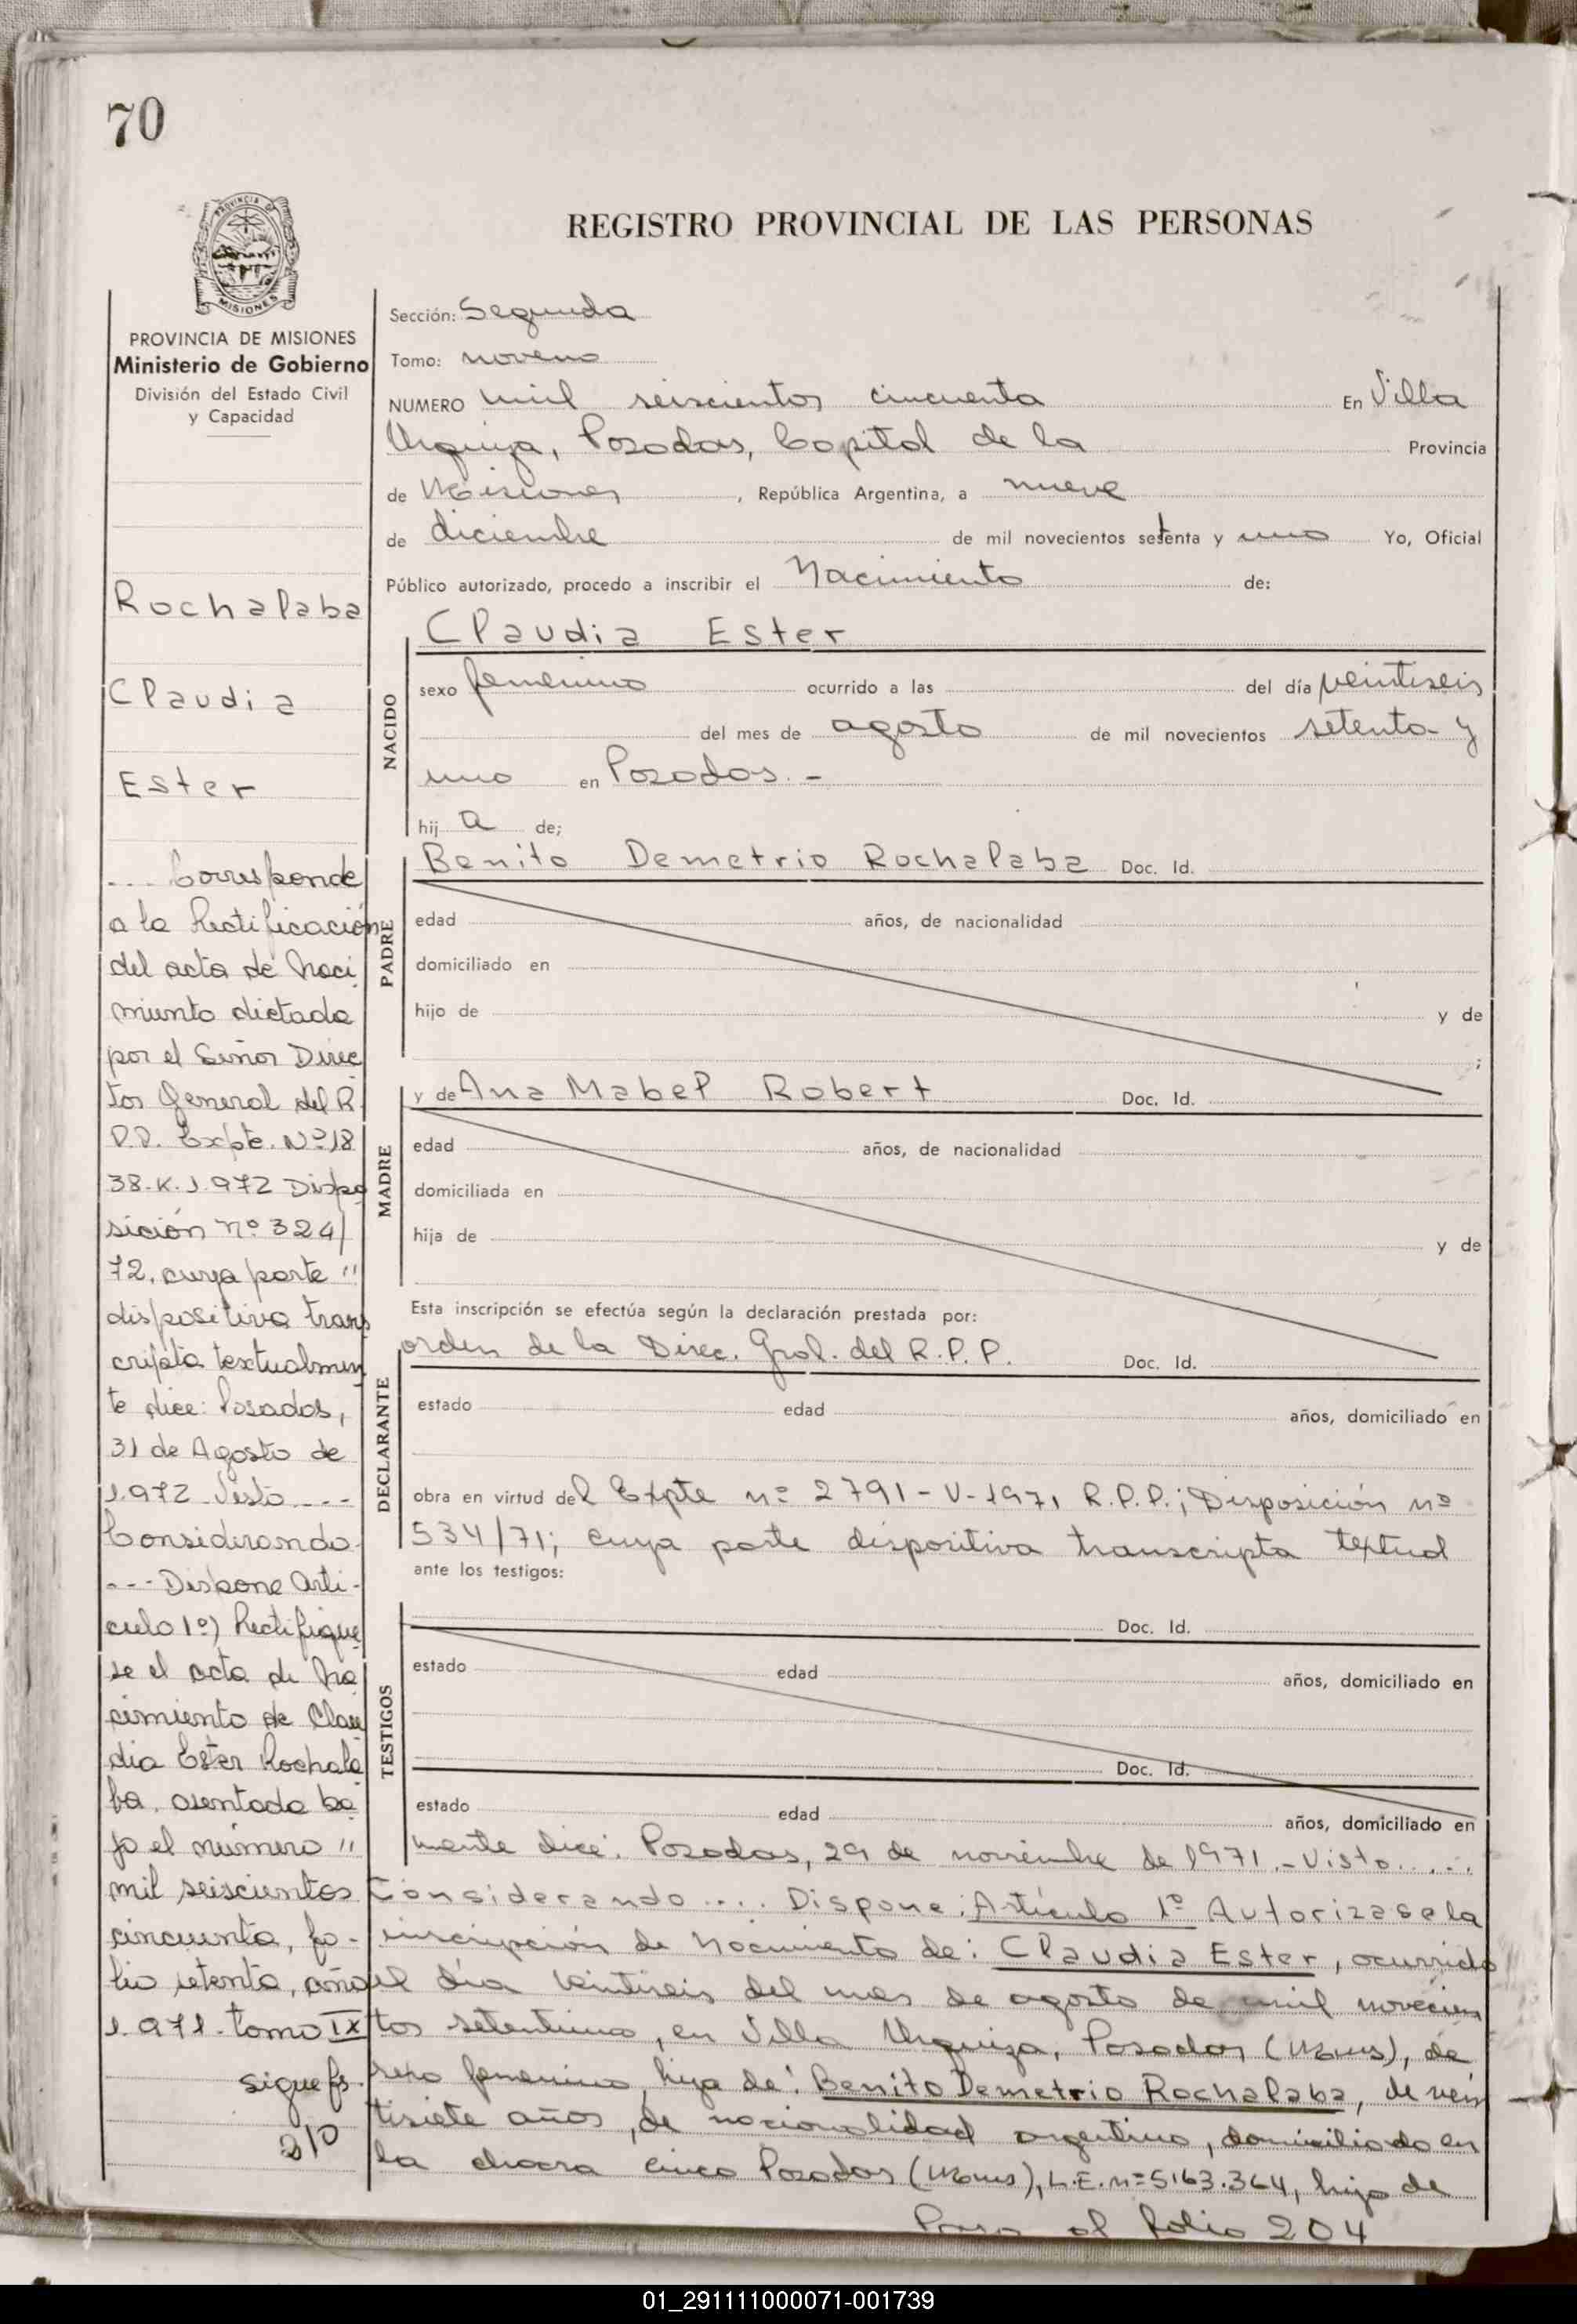 70
REGISTRO PROVINCIAL DE LAS PERSONAS
PROVINCIA DE MISIONES
PROVINCIA DE MISIONES
Ministerio de Gobierno
División del Estado Civil
y Capacidad
Rochalaba
Claudia
Ester
... Corresponde
a la Rectificación
del acta de Naci
miento dictada
por el Señor Direc
tor General del R.
P.P. Expte. Nº 18
38-K-1.972 Dispo
sición nº 324/
72, cuya parte "
dispositiva trans
cripta textualmen
te dice: Posadas,
31 de Agosto de
1.972 Visto ....
Considerando
... Dispone Arti-
culo 1º) Rectifíque
se el acta de Na
cimiento de Clau
dia Ester Rochala
ba, asentada ba
jo el número "
mil seiscientos
cincuenta, fo-
lio setenta, año
1.971 - tomo IX
sigue fs.
210
Sección: Segunda
Tomo: noveno
NUMERO mil seiscientos cincuenta En Villa
Urquiza, Posadas, Capital de la Provincia
de Misiones, República Argentina, a nueve
de diciembre de mil novecientos setenta y uno Yo, Oficial
Público autorizado, procedo a inscribir el Nacimiento de:
NACIDO
Claudia Ester
sexo femenino ocurrido a las del día veintiseis
del mes de agosto de mil novecientos setenta y
uno en Posadas.-
hij a de;
PADRE
Benito Demetrio Rochalaba Doc. Id.
edad años, de nacionalidad
domiciliado en
hijo de y de
;
MADRE
y de Ana Mabel Robert Doc. Id.
edad años, de nacionalidad
domiciliada en
hija de y de
DECLARANTE
Esta inscripción se efectúa según la declaración prestada por:
orden de la Direc. Gral. del R.P.P. Doc. Id.
estado edad años, domiciliado en
obra en virtud del Expte nº 2791-V-1971 R.P.P.; Disposición nº
534/71; cuya parte dispositiva transcripta textual
ante los testigos:
TESTIGOS
Doc. Id.
estado edad años, domiciliado en
Doc. Id.
estado edad años, domiciliado en
mente dice: Posadas, 29 de noviembre de 1971.- Visto.....
Considerando.... Dispone: Artículo 1º Autorizase la
inscripción de Nacimiento de: Claudia Ester, ocurrido
el día veintiseis del mes de agosto de mil novecien
tos setentiuno, en Villa Urquiza, Posadas (Mnes), de
sexo femenino, hija de: Benito Demetrio Rochalaba, de vein
tisiete años, de nacionalidad argentino, domiciliado en
la chacra cinco Posadas (Mnes), L.E. nº 5163.364, hijo de
Pasa al folio 204
01_291111000071-001739